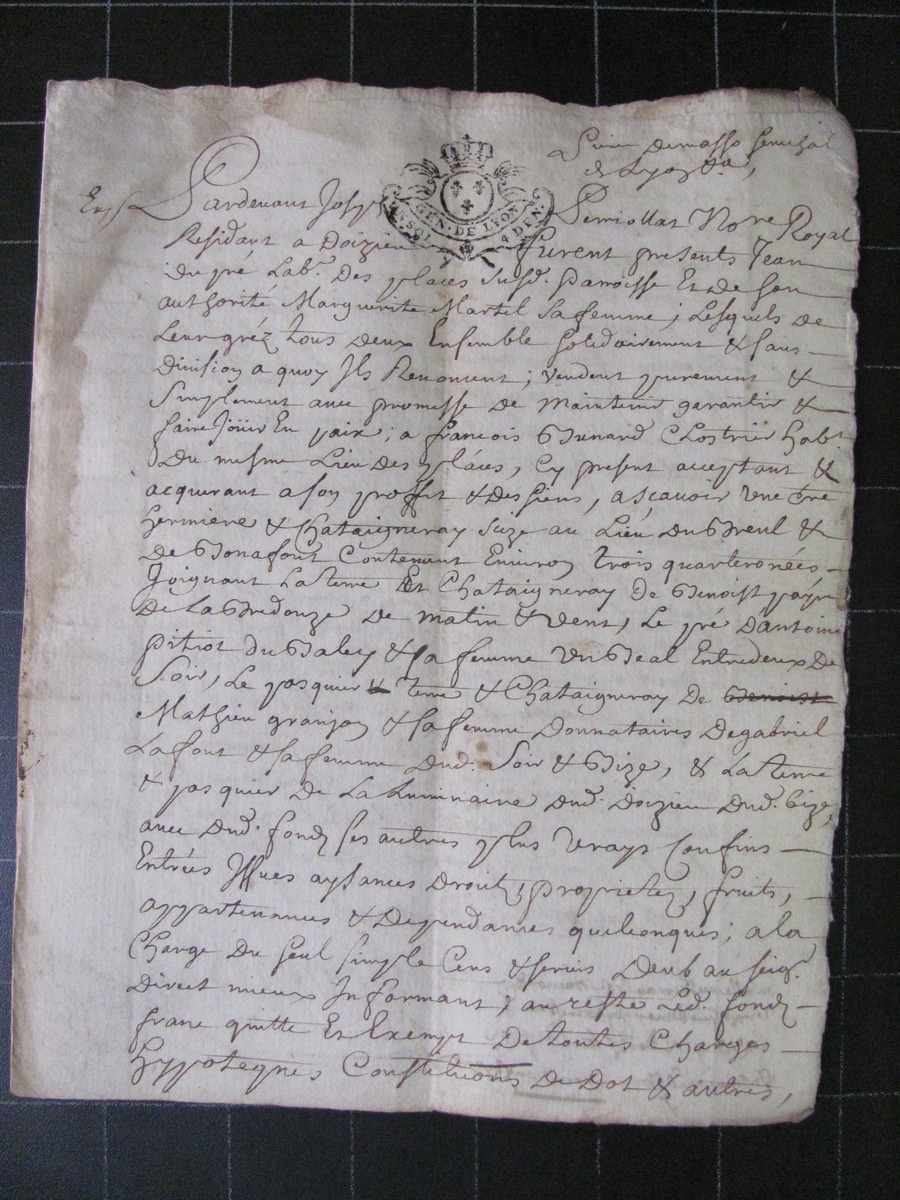 de Lyon
GEN. DE LYON
UN SOL 4 DEN.
Pardevant Joseph Perriollat No.re Royal
Residant a Doizieu furent presents Jean
du pré Lab.r Des places Susd. paroisse Et de son
authorité Marguerite Martel sa femme ; Lesquels de
Leur gréz tous deux Ensemble solidairement & sans
Division a quoy Ils Renoncent ; vendent purement &
Simplement avec promesse de maintenir garantir &
faire Joüir En paix ; a francois Brunard Clostrier hab.t
Du mesme Lieu Des places, Cy present acceptant &
acquerant a son proffit & des siens, ascavoir Une t.re
hermiere & Chataigneray Size au Lieu Du Breul &
De Bonafont Contenant Environ trois quarteronées
Joignant La terre Et Chataigneray De Benoist payre
De La Bredouze de matin & vent, Le pré d'antoine
pitiot du Baley & sa femme Un Beal Entredeux De
Soir, Le pasquier & terre & Chataigneray De Benoist
Mathieu granjon & sa femme Donnataires De gabriel
Lafont & sa femme Dud. Soir & Bize, & La terre
& pasquier De La Luminaire Dud. Doizieu Dud. bize,
avec Dud. fondz ses autres plus vrays Confins
Entrées Issues aysances Droitz, proprietez, fruits,
appartenances & Dependances quelconques ; a la
Charge Du seul simple Cens & servis Deub au seig.r
Direct mieux Informant ; au reste Led. fondz
franc quitte Et Exempt De toutes Charges
hypoteques Constitutions de Dot & autres,